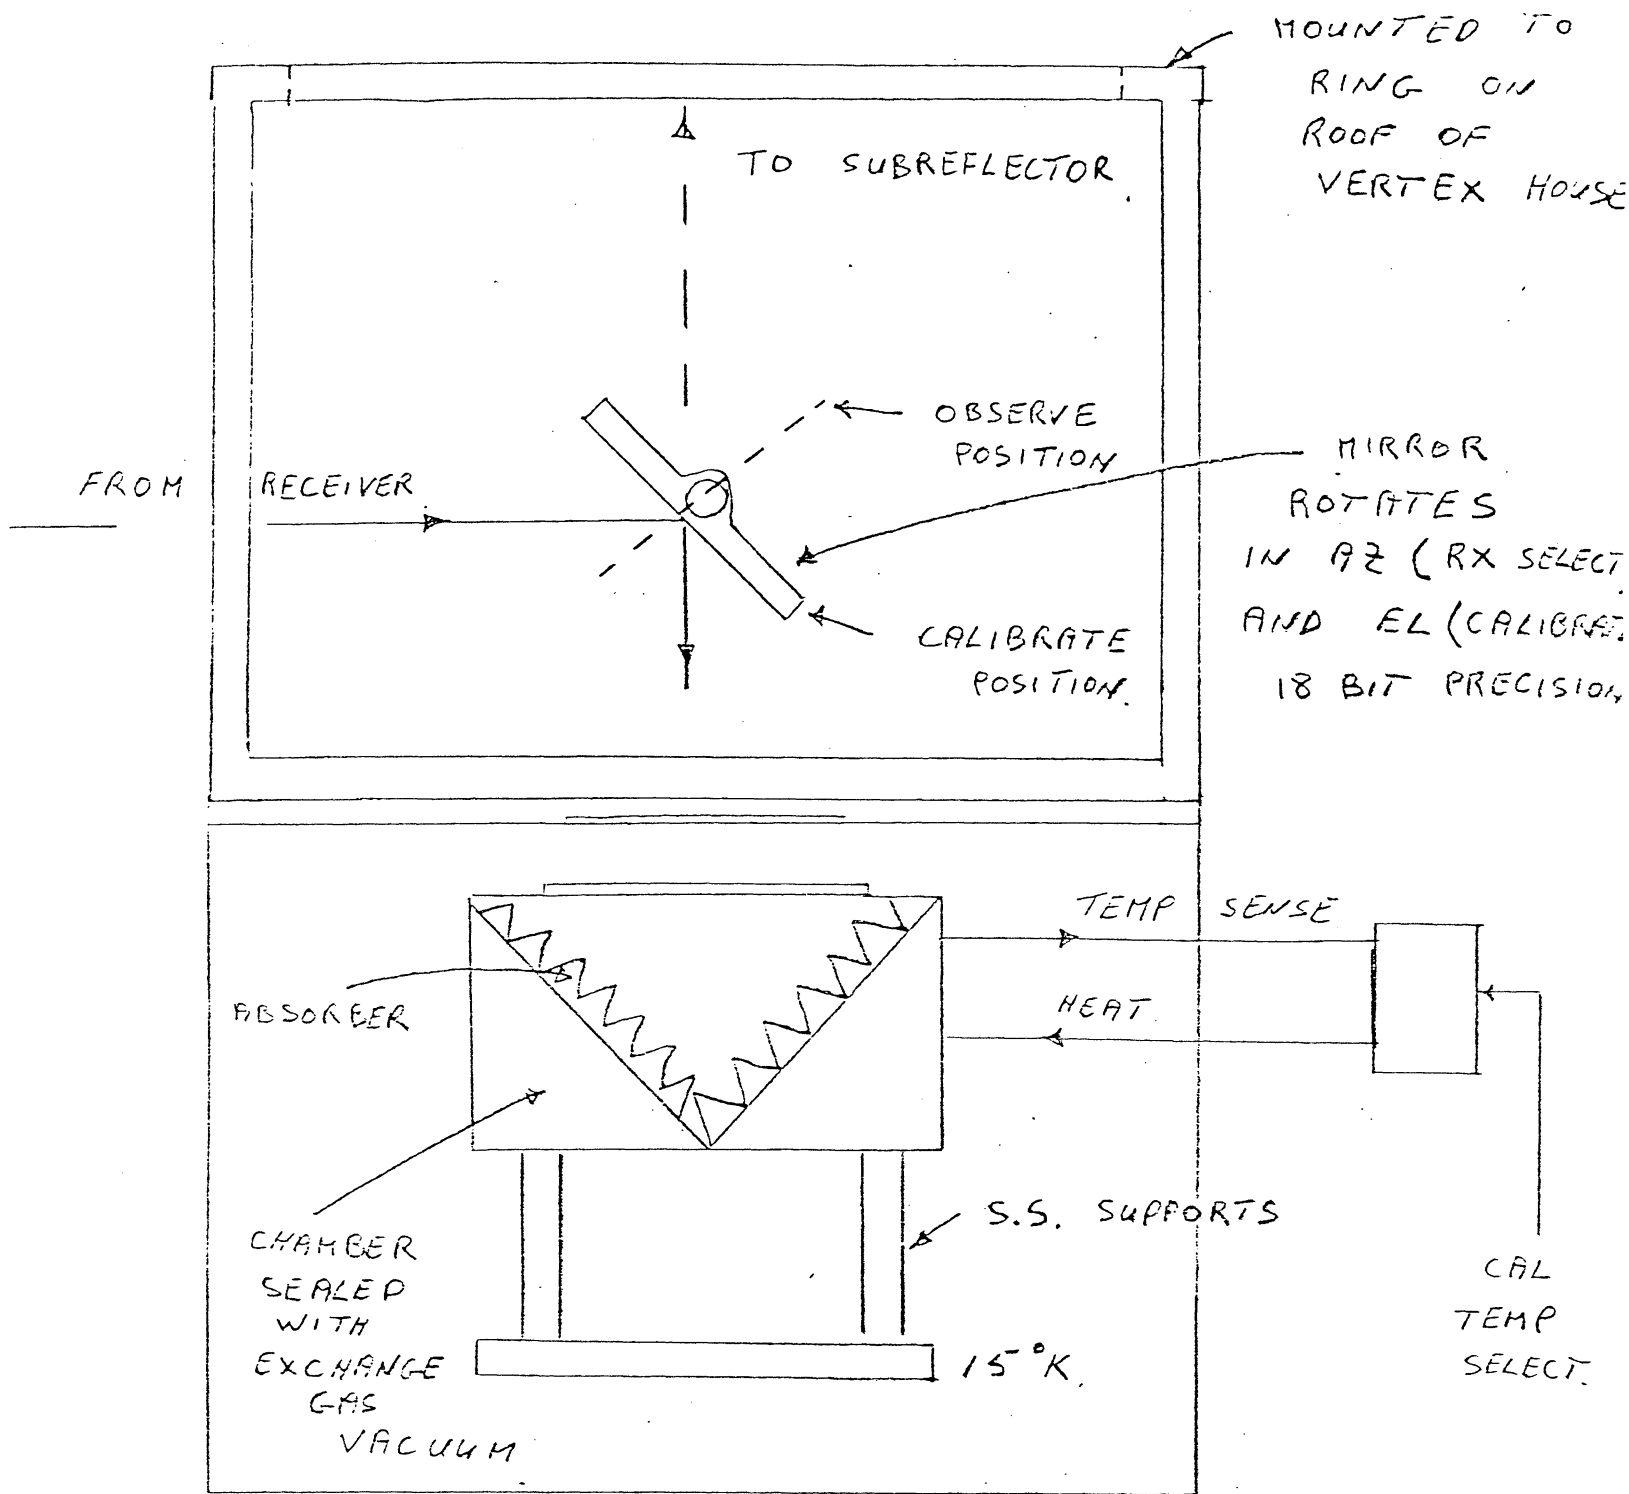 MOUNTED TO
RING ON
ROOF OF
VERTEX HOUSE
TO SUBREFLECTOR.
OBSERVE
POSITION
FROM RECEIVER
MIRROR
ROTATES
IN AZ (RX SELECT.
AND EL (CALIBRAT.
18 BIT PRECISION
CALIBRATE
POSITION.
TEMP SENSE
ABSORBER
HEAT.
S.S. SUPPORTS
CHAMBER
SEALED
WITH
EXCHANGE
GAS
VACUUM
15°K.
CAL
TEMP
SELECT.